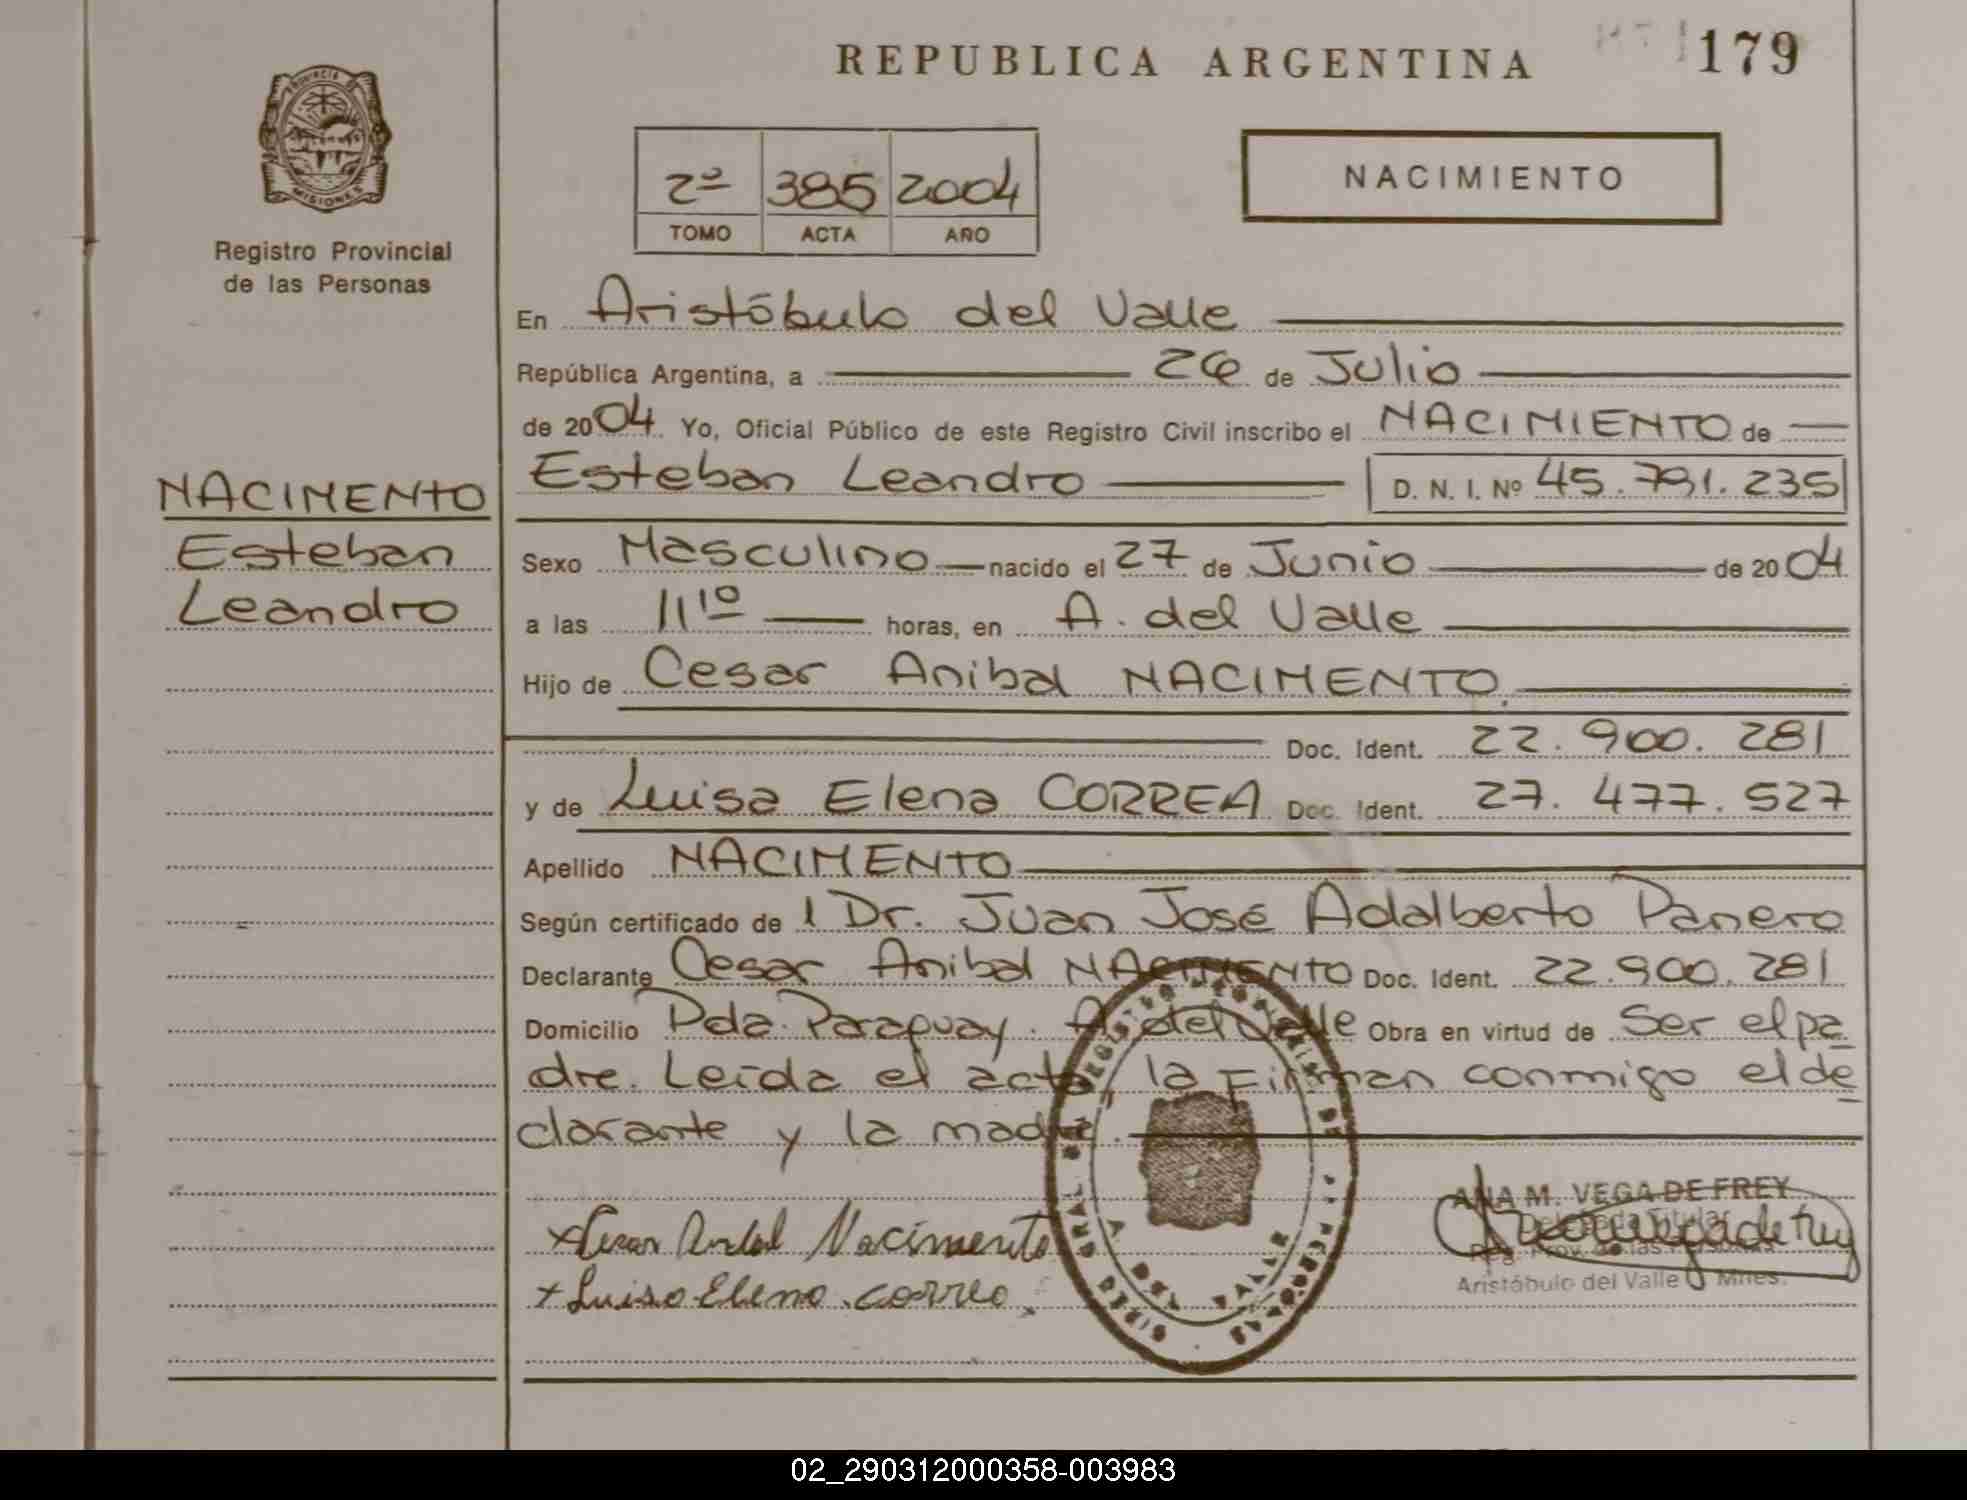 REPUBLICA ARGENTINA
179
PROVINCIA DE
MISIONES
Registro Provincial
de las Personas
2º 385 2004
TOMO ACTA AÑO
NACIMIENTO
En Aristóbulo del Valle
República Argentina, a 26 de Julio
de 2004 Yo, Oficial Público de este Registro Civil inscribo el NACIMIENTO de
Esteban Leandro D. N. I. Nº 45.791.235
NACIMENTO
Esteban
Leandro
Sexo Masculino nacido el 27 de Junio de 2004
a las 11¹⁰ horas, en A. del Valle
Hijo de Cesar Anibal NACIMENTO
Doc. Ident. 22.900.281
y de Luisa Elena CORREA Doc. Ident. 27.477.527
Apellido NACIMENTO
Según certificado de l Dr. Juan José Adalberto Panero
Declarante Cesar Anibal NACIMENTO Doc. Ident. 22.900.281
Domicilio Pda. Paraguay. A. del Valle Obra en virtud de Ser el pa
dre. Leída el acta la Firman conmigo el de
clarante y la madre.
ANA M. VEGA DE FREY
Delegada Titular
Reg. Prov. de las Personas
Aristóbulo del Valle Mnes.
+Cesar Anibal Nacimento
+Luisa Elena correa
A DEL VALLE
02_290312000358-003983